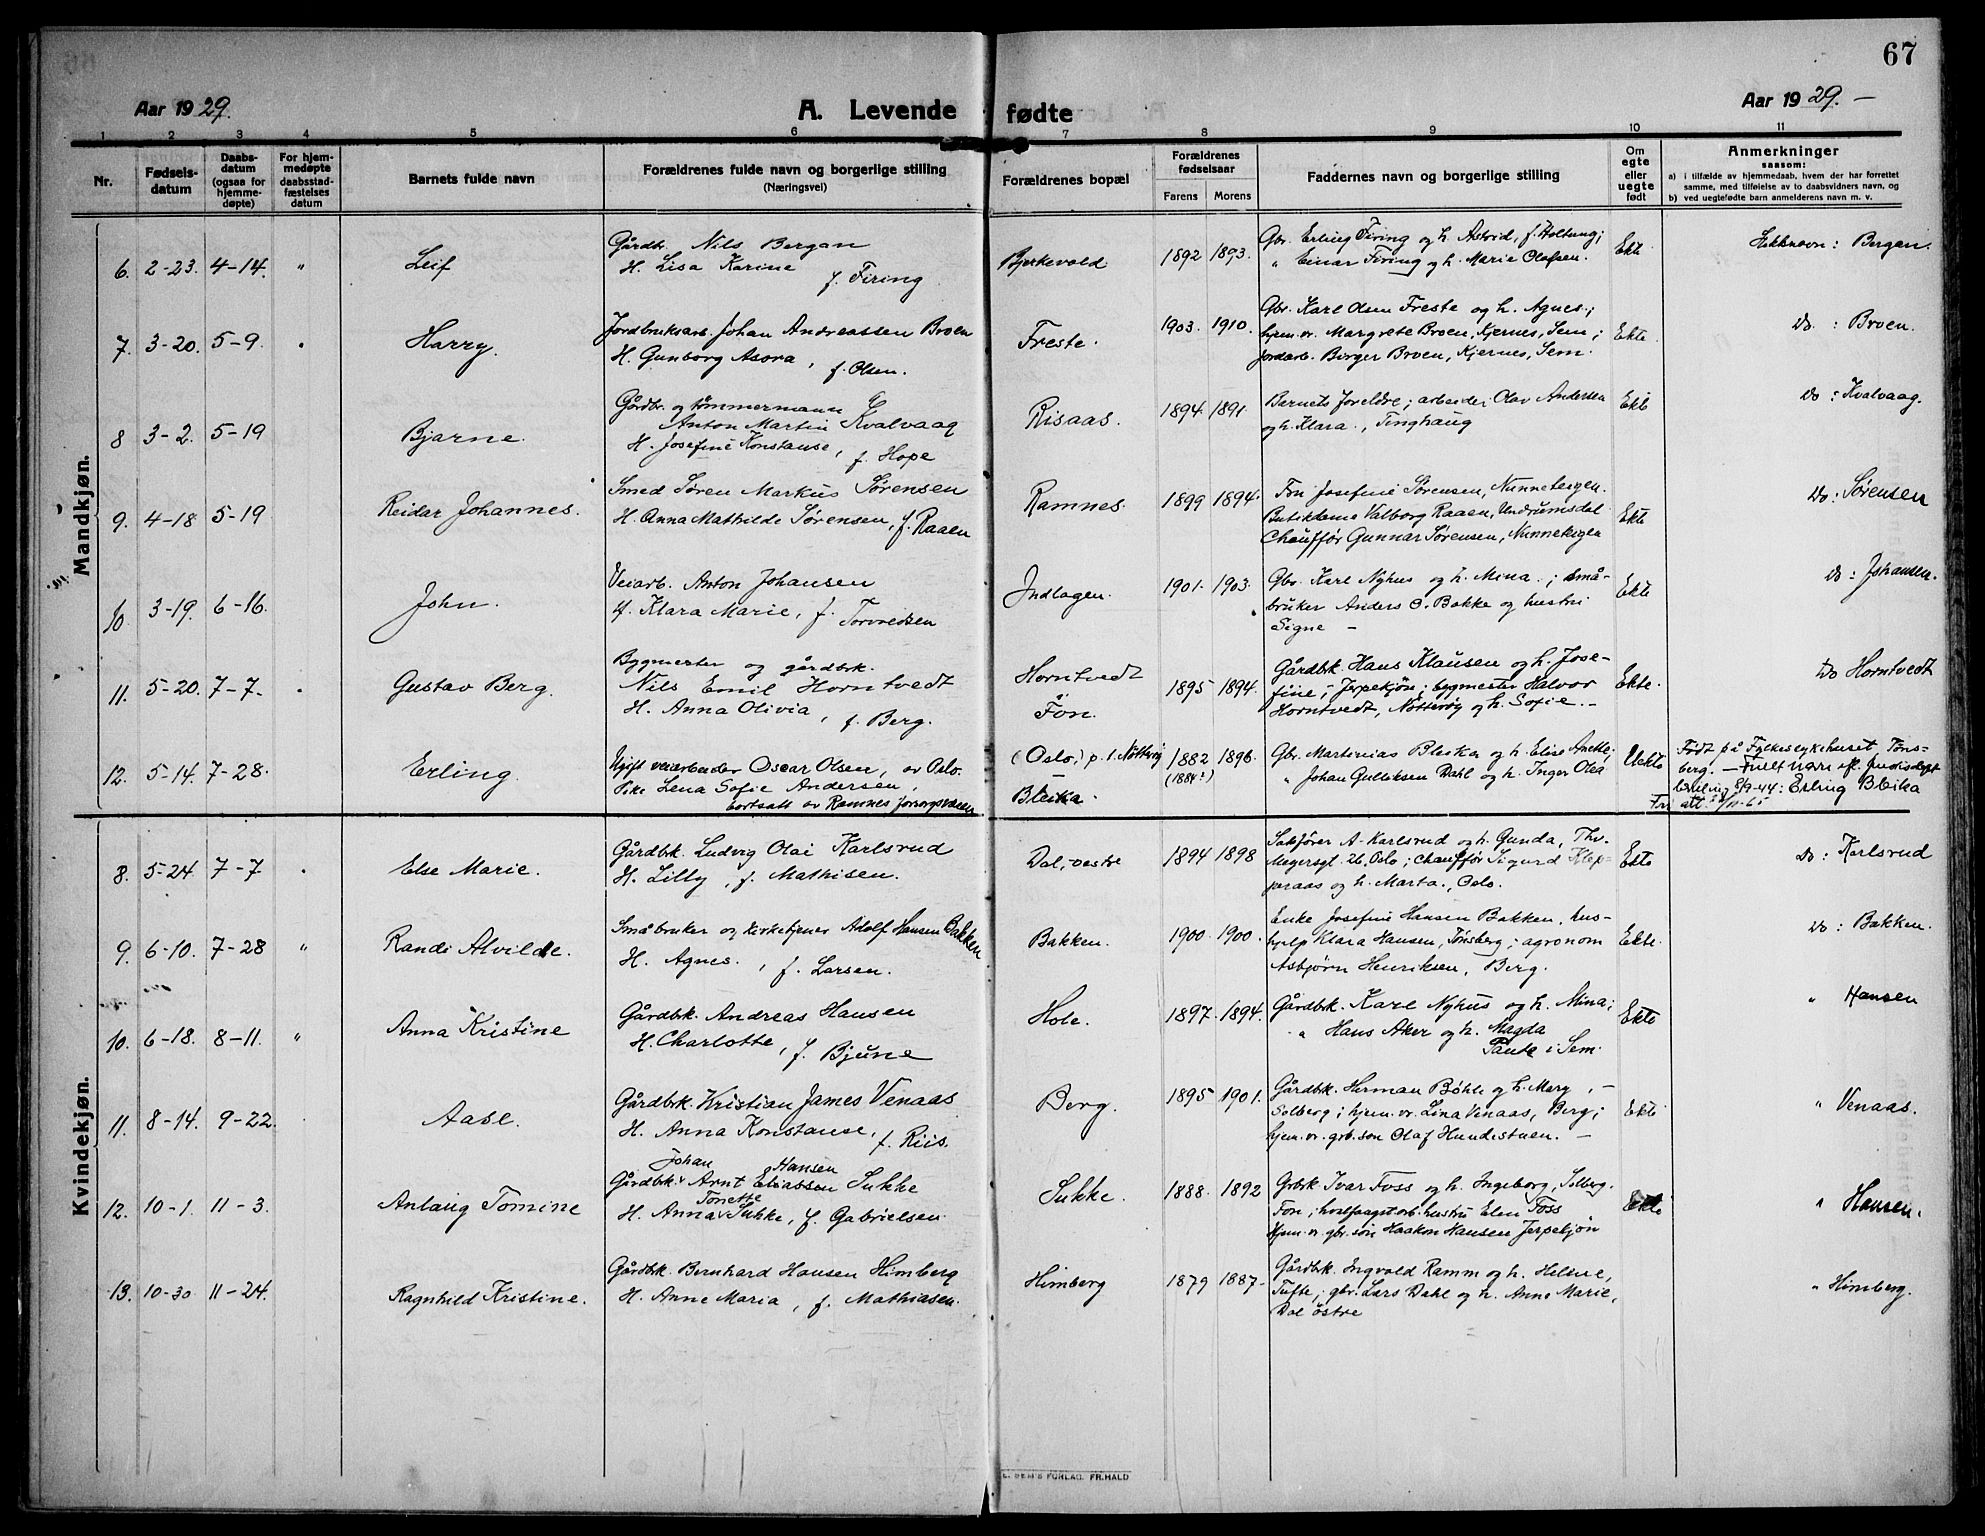 67
Aar 1929. A. Levende fødte Aar 1929. –
1 2 3 4 5 6 7 8 9 10 11
Nr. Fødsels-datum Daabs-datum (ogsaa for hjemme-døpte) For hjem-medøpte daabsstad-fæstelses datum Barnets fulde navn Forældrenes fulde navn og borgerlige stilling (Næringsvei) Forældrenes bopæl Forældrenes fødselsaar Farens Morens Faddernes navn og borgerlige stilling Om egte eller uegte født Anmerkninger saasom: a) i tilfælde av hjemmedaab, hvem der har forrettet samme, med tilføielse av to daabsvidners navn, og b) ved uegtefødte barn anmelderens navn m. v.
Mandkjøn.
6. 2-23. 4-14. " Leif Gårdbr. Nils Bergan Bjerkevold 1892 1893. Gbr. Erling Firing og h. Astrid, f. Holtung; Ekte Slektsnavn: Bergan.
H. Lisa Karine f. Firing " Einar Firing og h. Marie Olafsen.
7. 3-20. 5-9. " Harry. Jordbruksarb. Johan Andreassen Broen Freste. 1903. 1910. Gbr. Karl Olsen Freste og h. Agnes; Ekte. Do : Broen.
H. Gunborg Asora, f. Olsen. hjem.vr. Margrete Broen, Kjernes, Sem;
jordarb. Borger Broen, Kjernes, Sem.
8 3-2. 5-19 Bjarne. Gårdbr. og tømmermann Risaas. 1894. 1891. Barnets foreldre; arbeider Olav Andersen Ekte Do : Kvalvaag.
Anton Martin Kvalvaag og h. Klara., Tinghaug
H. Josefine Konstanse, f. Hope
9. 4-18 5-19 Reidar Johannes. Smed Søren Markus Sørensen Ramnes. 1899 1894. Fru Josefine Sørensen, Nunnebergen. Ekte Do: Sørensen
H. Anna Mathilde Sørensen, f. Raaen Butikdame Valborg Raaen, Undrumsdal
Chauffør Gunnar Sørensen, Nunnebergen
10 3-19. 6-16. John. Veiarb. Anton Johansen Indlagen. 1901. 1903. Gbr. Karl Nyhus og h. Mina.; små- Ekte Do : Johansen.
H. Klara Marie, f. Torvredsen bruker Anders O. Bakke og hustru
Signe –
11. 5-20. 7-7. " Gustav Berg. Bygmester og gårdbrk. Horntvedt Fon. 1895 1894. Gårdbk. Hans Klausen og h. Jose- Ekte. Do Horntvedt
Nils Emil Horntvedt fine, Jerpekjøn; bygmester Halvor
H. Anna Olivia, f. Berg. Horntvedt, Nøtterøy og h. Sofie. –
12. 5-14. 7-28. Erling. Ugift veiarbeider Oscar Olsen, av Oslo. (Oslo,) p.t. Nøtterøy 1882 (1884?) 1896. Gbr. Martinius Bleika og h. Elise Anette; Uekte Født på Fylkessykehuset, Tøns-
Pike Lena Sofie Andersen, – Bleika. " Johan Gulliksen Dahl og h. Inger Olea berg. –
bortsatt av Ramnes forsorgsvæsen 9-44: Erling Bleika
Kvindekjøn.
8. 5-24. 7-7 . Else Marie. Gårdbk. Ludvig Olai Karlsrud Dal, vestre 1894 1898 Sakfører A. Karlsrud og h. Gunda, Thv. Ekte Do : Karlsrud
H. Lilly, f. Mathisen. Meyersgt. 26, Oslo; chauffør Sigurd Klep-
peraas og h. Marta., Oslo.
9. 6-10. 7-28 " Randi Alvilde. Småbruker og kirketjener Adolf Hansen Bakken Bakken. 1900. 1900. Enke Josefine Hansen Bakken, hus- Ekte. Do : Bakken.
H. Agnes., f. Larsen. hjelp Klara Hansen, Tønsberg; agronom
Asbjørn Henriksen, Berg.
10. 6-18. 8-11. " Anna Kristine Gårdbk. Andreas Hansen Hole. 1897. 1894. Gårdbk. Karl Nyhus og h. Mina; Ekte " Hansen
H. Charlotte, f. Bjune " Hans Aker og h. Magda
i Sem.
11. 8-14. 9-22. Aase. Gårdbk. Kristian James Venaas Berg. 1895 1901. Gårdbk. Herman Bøhle og h. Mary, – Ekte " Venaas.
H. Anna Konstanse, f. Riis. Solberg; hjem.vr. Lina Venaas, Berg;
hjem.vr. grb.søn Olaf Hundestuen. –
12. 10-1. 11-3. Anlaug Tomine Gårdbk. Johan Arnt Eliassen Hansen Sukke Sukke. 1888. 1892 Grbrk Ivar Foss og h. Ingeborg, Solberg. Ekte " Hansen.
H. Anna Tonette Sukke, f. Gabrielsen. Fon; hvalfangstarb. hustru Elen Foss
Hjem.vr. gbr.søn Haakon Hansen Jerpekjøn
13. 10-30 11-24. Ragnhild Kristine. Gårdbk. Bernhard Hansen Himberg Himberg 1879 1887 Gårdbk. Ingvald Ramm og h. Helene, " Himberg.
H. Anne Maria, f. Mathiasen. Tufte; gbr. Lars Dahl og h. Anne Marie,
Dal østre
E. SEM'S FORLAG. FR.HALD